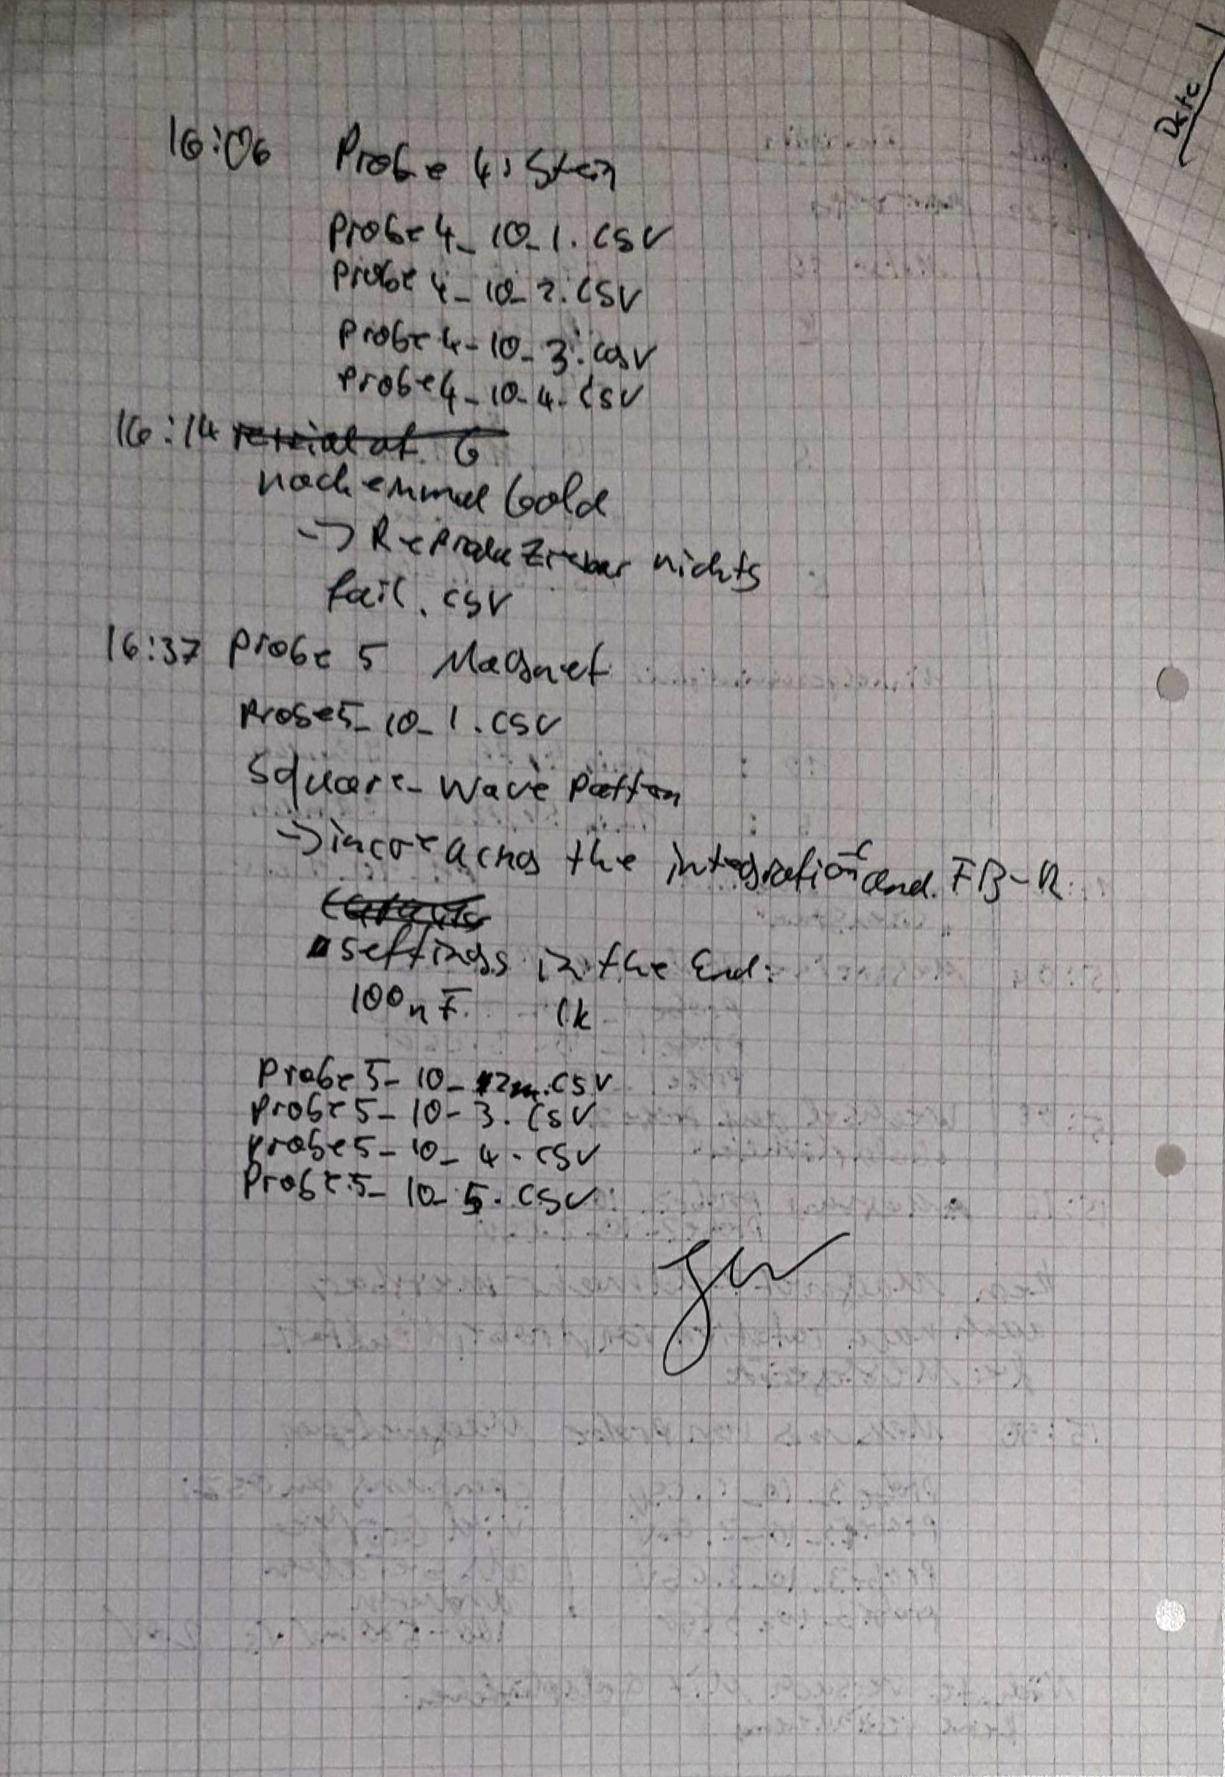 Date
16:06 Probe 4: Stein
Probe4_10_1.csv
Probe4_10_2.csv
Probe4_10_3.csv
Probe4_10_4.csv
16:14 retrial of G
noch einmal Gold
-> Reproduzierbar nichts
fail.csv
16:37 Probe 5 Magnet
Probe5_10_1.csv
Square-Wave Pattern
-> increacing the integration-C and FB-R
settings in the End:
100nF 1k
Probe5_10_2.csv
Probe5_10_3.csv
Probe5_10_4.csv
Probe5_10_5.csv